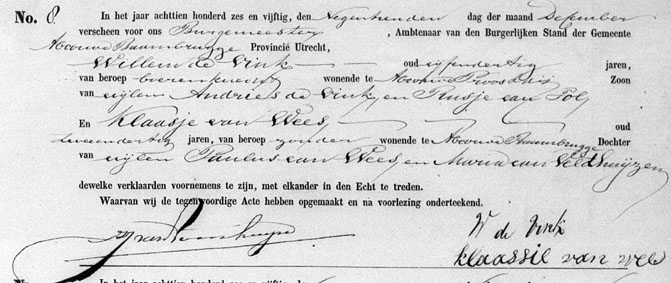 No. 8 In het jaar achttien honderd zes en vijftig, den Negentienden dag der maand December
verscheen voor ons Burgemeester , Ambtenaar van den Burgerlijken Stand der Gemeente
Abcoude Baambrugge Provincië Utrecht,
Willem de Vink oud vijfendertig jaren,
van beroep boerenknecht wonende te Abcoude Proostdij Zoon
van wijlen Andries de Vink en Rusje van Tol
En Klaasje van Wees oud
tweeendertig jaren, van beroep zonder wonende te Abcoude Baambrugge Dochter
van wijlen Paulus van Wees en Maria van Veldhuijzen
dewelke verklaarden voornemens te zijn, met elkander in den Echt te treden.
Waarvan wij de tegenwoordige Acte hebben opgemaakt en na voorlezing onderteekend.
W de Vink
klaassie van wees
No. In het jaar achttien honderd zes en vijftig, den dag der maand